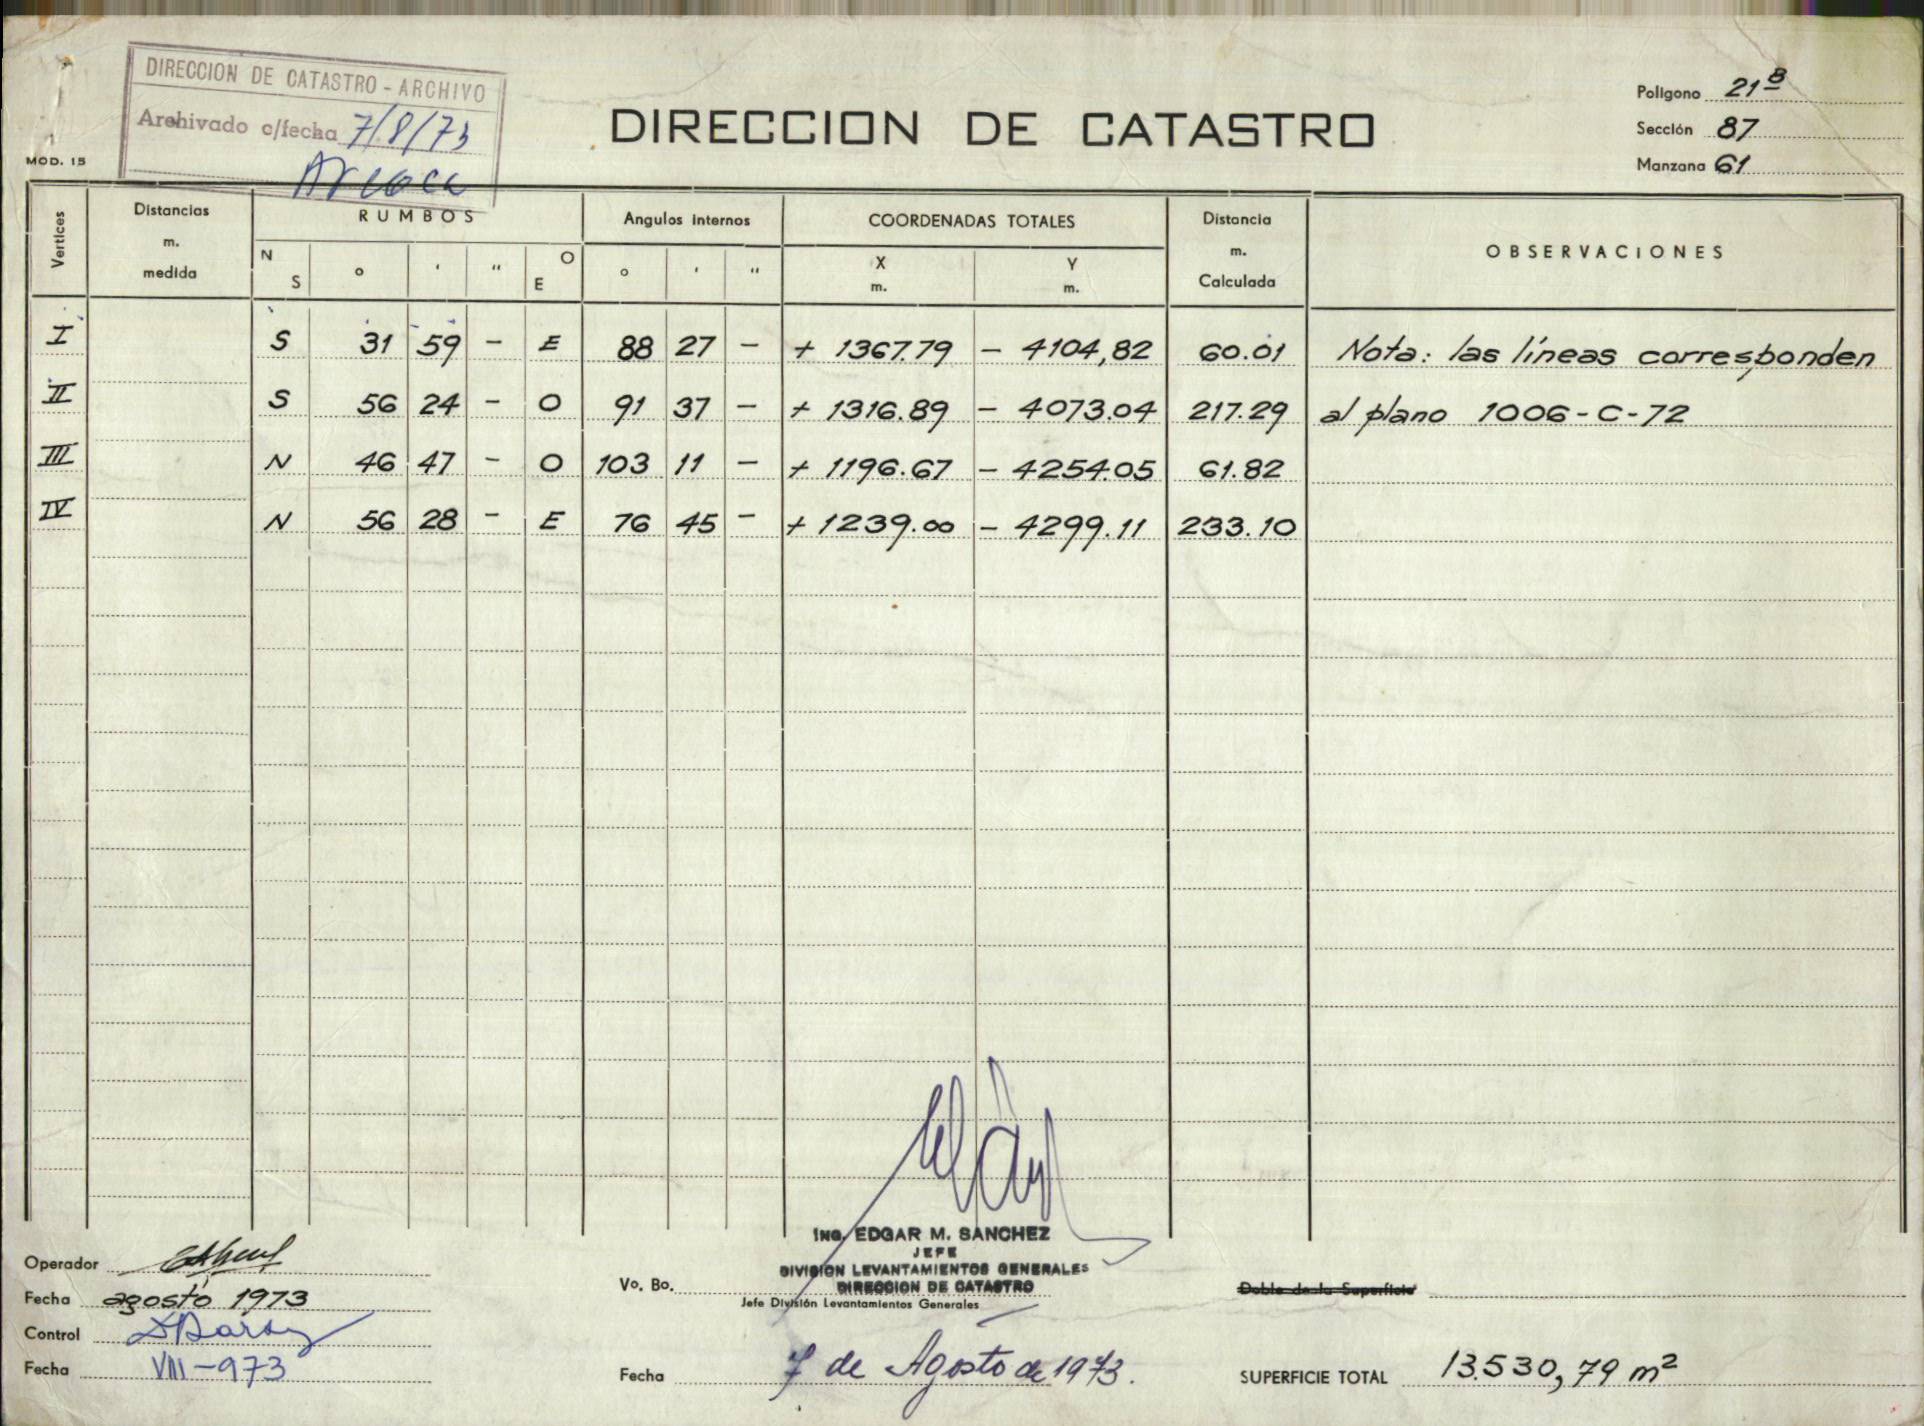 DIRECCION DE CATASTRO - ARCHIVO
Archivado c/fecha 7/8/73
MOD. 15
DIRECCION DE CATASTRO
Polígono 21 B
Sección 87
Manzana 61
Vertices Distancias m. medida RUMBOS Angulos internos COORDENADAS TOTALES Distancia m. Calculada OBSERVACIONES
N S ° ' " O E ° ' " X m. Y m.
I S 31 59 - E 88 27 - + 1367.79 - 4104,82 60.01 Nota: las líneas corresponden
II S 56 24 - O 91 37 - + 1316.89 - 4073.04 217.29 al plano 1006-C-72
III N 46 47 - O 103 11 - + 1196.67 - 4254.05 61.82
IV N 56 28 - E 76 45 - + 1239.00 - 4299.11 233.10
ING. EDGAR M. SANCHEZ
JEFE
DIVISION LEVANTAMIENTOS GENERALES
DIRECCION DE CATASTRO
Operador
Fecha agosto 1973
Control
Fecha VIII-973
Vo. Bo.
Jefe División Levantamientos Generales
Fecha 7 de Agosto de 1973.
Doble de la Superficie
SUPERFICIE TOTAL 13.530,79 m²